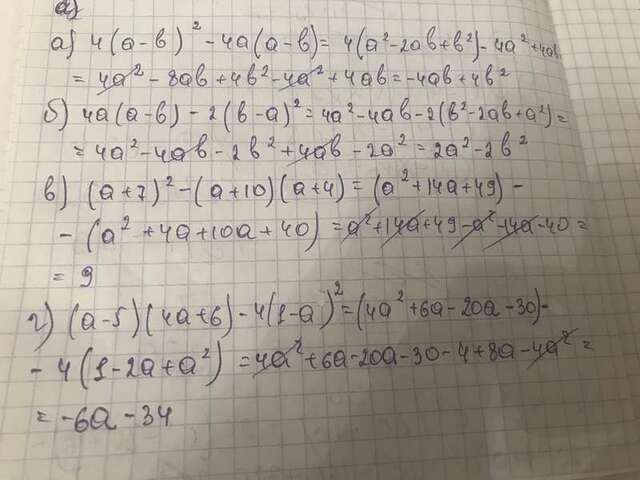 а) 4(a-b)² - 4a(a-b) = 4(a² - 2ab + b²) - 4a² + 4ab
= 4a² - 8ab + 4b² - 4a² + 4ab = -4ab + 4b²
б) 4a(a-b) - 2(b-a)² = 4a² - 4ab - 2(b² - 2ab + a²) =
= 4a² - 4ab - 2b² + 4ab - 2a² = 2a² - 2b²
в) (a+7)² - (a+10)(a+4) = (a² + 14a + 49) -
- (a² + 4a + 10a + 40) = a² + 14a + 49 - a² - 14a - 40 =
= 9
г) (a-5)(4a+6) - 4(1-a)² = (4a² + 6a - 20a - 30) -
- 4(1 - 2a + a²) = 4a² + 6a - 20a - 30 - 4 + 8a - 4a² =
= -6a - 34